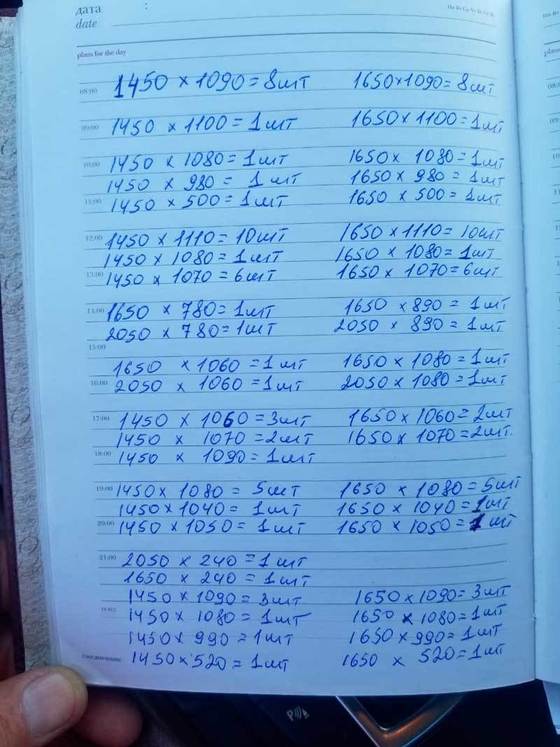 дата
date
plans for the day
08:00 1450 × 1090 = 8шт 1650×1090 = 8шт
09:00 1450 × 1100 = 1шт 1650 × 1100 = 1шт
10:00 1450 × 1080 = 1шт 1650 × 1080 = 1шт
1450 × 980 = 1шт 1650 × 980 = 1шт
11:00 1450 × 500 = 1шт 1650 × 500 = 1шт
12:00 1450 × 1110 = 10шт 1650 × 1110 = 10шт
1450 × 1080 = 1шт 1650 × 1080 = 1шт
13:00 1450 × 1070 = 6шт 1650 × 1070 = 6шт
14:00 1650 × 780 = 1шт 1650 × 890 = 1шт
2050 × 780 = 1шт 2050 × 890 = 1шт
15:00
1650 × 1060 = 1шт 1650 × 1080 = 1шт
16:00 2050 × 1060 = 1шт 2050 × 1080 = 1шт
17:00 1450 × 1060 = 3шт 1650 × 1060 = 2шт
1450 × 1070 = 2шт 1650 × 1070 = 2шт.
18:00 1450 × 1090 = 1шт
19:00 1450 × 1080 = 5шт 1650 × 1080 = 5шт
1450 × 1040 = 1шт 1650 × 1040 = 1шт
20:00 1450 × 1050 = 1шт 1650 × 1050 = 1шт
21:00 2050 × 240 = 1шт
1650 × 240 = 1шт
1450 × 1090 = 3шт 1650 × 1090 = 3шт
1450 × 1080 = 1шт 1650 × 1080 = 1шт
1450 × 990 = 1шт 1650 × 990 = 1шт
1450 × 520 = 1шт 1650 × 520 = 1шт